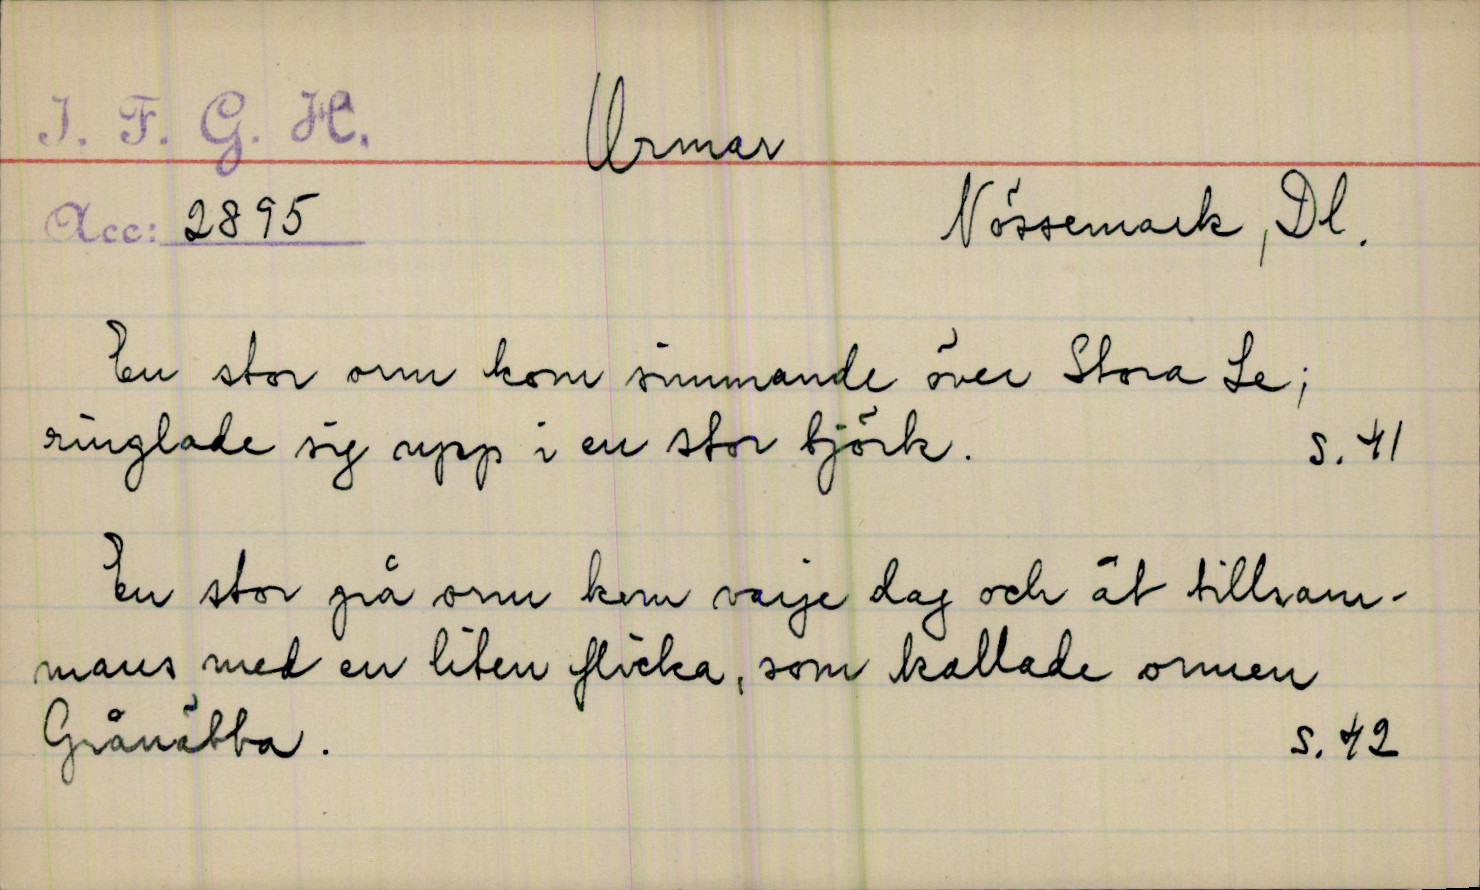 I. F. G. H.
Ormar
Acc: 2895
Nössemark, Dl.
En stor orm kom simmande över Stora Le;
ringlade sig upp i en stor björk. s. 41
En stor grå orm kom varje dag och åt tillsam-
mans med en liten flicka, som kallade ormen
Grånäbba. s. 42